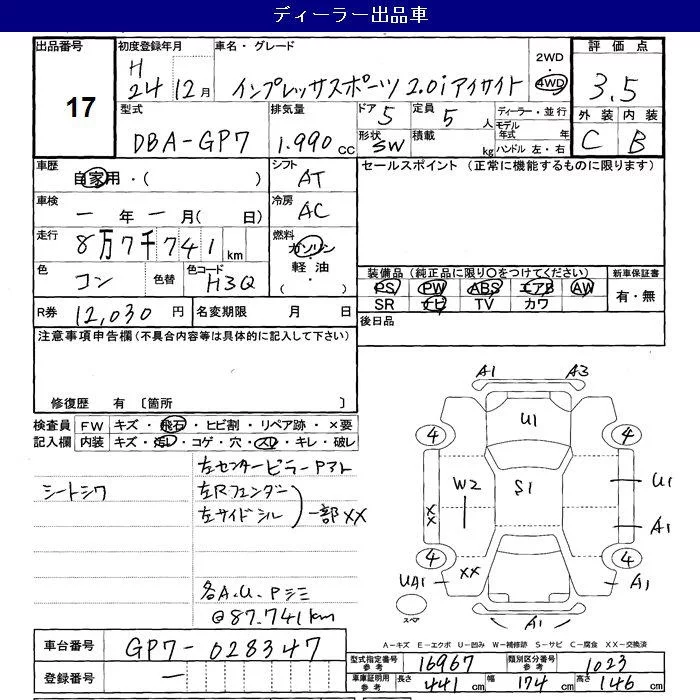 ディーラー出品車
出品番号 17
初度登録年月 H 24 12月
車名・グレード インプレッサスポーツ 2.0i アイサイト
2WD・4WD
評価点 3.5
外装 C 内装 B
型式 DBA-GP7
排気量 1.990 CC
ドア 5 定員 5 人
形状 SW 積載 kg
ディーラー・並行
モデル年式 年
ハンドル 左・右
車歴 自家用・( )
シフト AT
セールスポイント (正常に機能するものに限ります)
車検 一年一月( 日)
冷房 AC
走行 8万7千741km
燃料 ガソリン・軽油・( )
色 コン 色替 色コード H3Q
装備品 (純正品に限り○をつけてください) 新車保証書
PS PW ABS エアB AW 有・無
SR ナビ TV カワ
R券 12,030 円 名変期限 月 日
後日品
注意事項申告欄 (不具合内容等は具体的に記入して下さい)
修復歴 有 〔箇所 〕
検査員記入欄
FW キズ・飛石・ヒビ割・リペア跡・×要
内装 キズ・汚レ・コゲ・穴・スレ・キレ・破レ
シートシワ
左センターピラーPアト
左Rフェンダー
左サイドシル
一部XX
各A.U.Pシミ
@87.741km
A1 A3
U1
4 4
W2 S1 U1
XX A1
4 4
UA1 XX A1
スペア A1
A-キズ E-エクボ U-凹み W-補修跡 S-サビ C-腐食 XX-交換済
車台番号 GP7-028347
登録番号 一
型式指定番号 参考 16967 類別区分番号 参考 1023
車庫証明用 参考 長さ 441 cm 幅 174 cm 高さ 146 cm